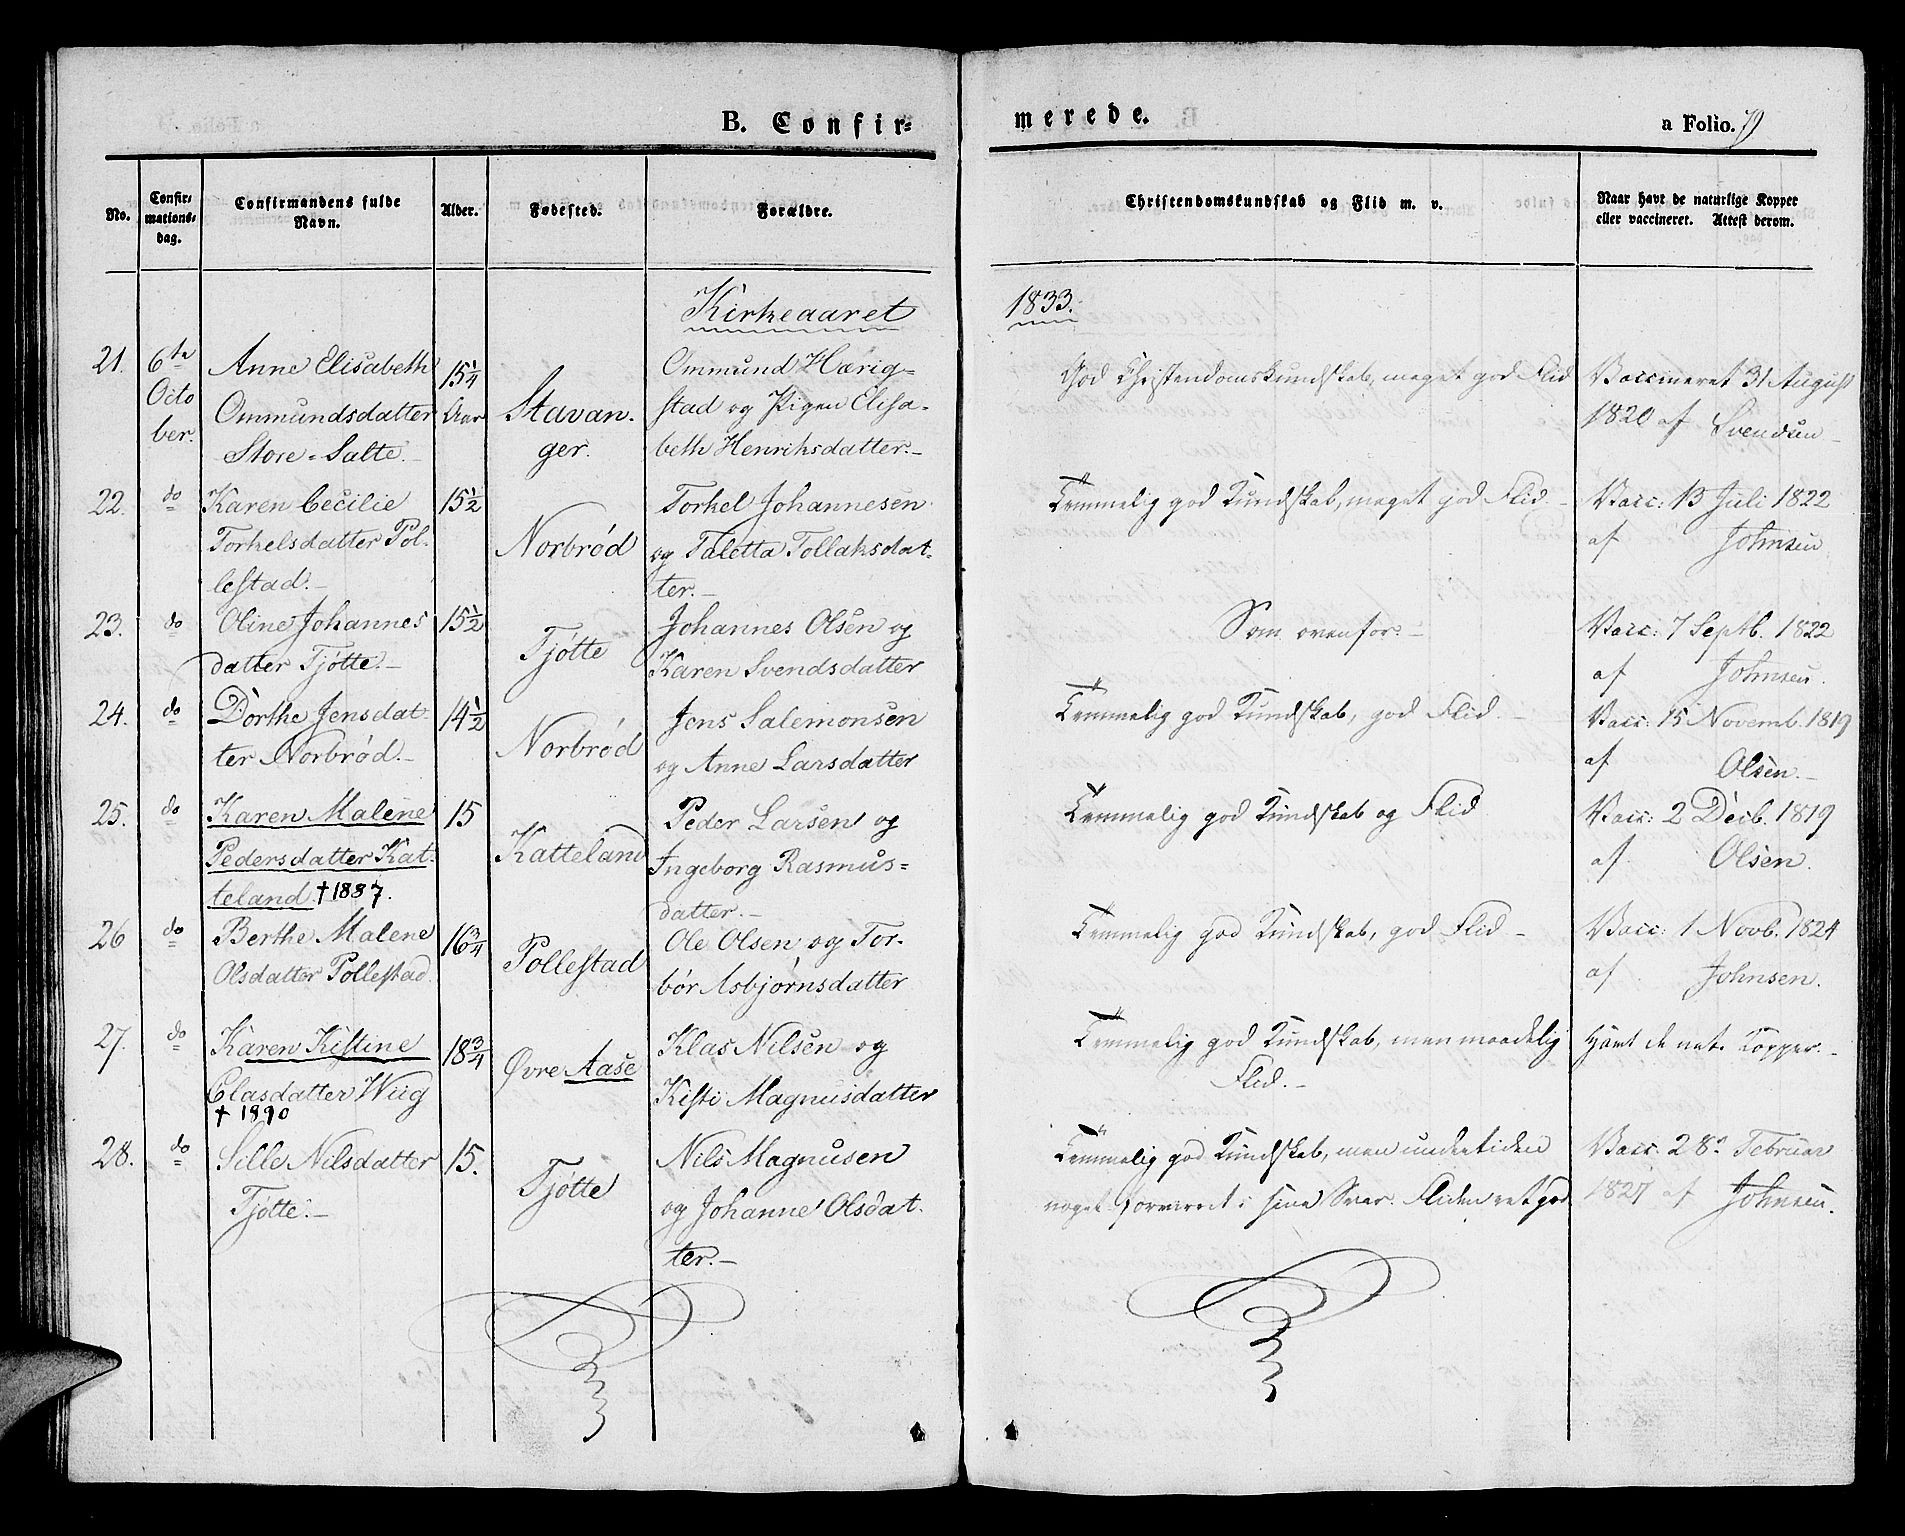 B. Confir-
merede.
a Folio. 79
No.
Confir-
mations-
dag.
Confirmandens fulde
Navn.
Alder.
Fødested.
Forældre.
Christendomskundskab og Flid m. v.
Naar havt de naturlige Kopper
eller vaccineret. Attest derom.
Kirkeaaret
1833.
21.
6te
Octo
ber.
Anne Elisabeth
Ommundsdatter
Store-Salte.-
15 1/4
Aar
Stavan-
ger.
Ommund Hærig-
stad og Pigen Elisa-
beth Henriksdatter.-
God Christendomskundskab, meget god Flid
Vaccineret 31 August
1820 af Svendsen-
22.
do
Karen Cecilie
Torkelsdatter Pol-
lestad.-
15 1/2
Norbrød
Torkel Johannesen
og Taletta Tollaksdat-
ter.-
Temmelig god Kundskab, meget god Flid.-
Vacc: 13 Juli 1822
af Johnsen
23.
do
Oline Johannes
datter Tjøtte.-
15 1/2
Tjøtte
Johannes Olsen og
Karen Svendsdatter
Som ovenfor.-
Vacc: 7 Septb. 1822
af Johnsen.
24.
do
Dorthe Jensdat-
ter Norbrød.-
14 1/2
Norbrød
Jens Salemonsen
og Anne Larsdatter
Temmelig god Kundskab, god Flid.-
Vacc: 15 Novemb. 1819
af Olsen.-
25.
do
Karen Malene
Pedersdatter Kat-
teland. † 1887.
15
Katteland
Peder Larsen og
Ingeborg Rasmus-
datter.-
Temmelig god Kundskab og Flid
Vacc: 2 Decb. 1819
af Olsen.
26
do
Berthe Malene
Olsdatter Pollestad.
16 3/4
Pollestad
Ole Olsen og Tor-
bør Asbjørnsdatter
Temmelig god Kundskab, god Flid-
Vacc: 1 Novb. 1824
af Johnsen.
27.
do
Karen Kistine
Clasdatter Wiig
† 1890
18 3/4
Øvre Aase
Klas Nilsen og
Kisti Magnusdatter
Temmelig god Kundskab, men maadelig
Flid.-
Havt de nat. Kopper.-
28.
do
Sille Nilsdatter
Tjøtte.-
15.
Tjøtte
Nils Magnusen
og Johanne Olsdat-
ter.-
Temmelig god Kundskab, men undertiden
noget forvirret i sine Svar. Fliden ret god
Vacc. 28. Februar
1827 af Johnsen.